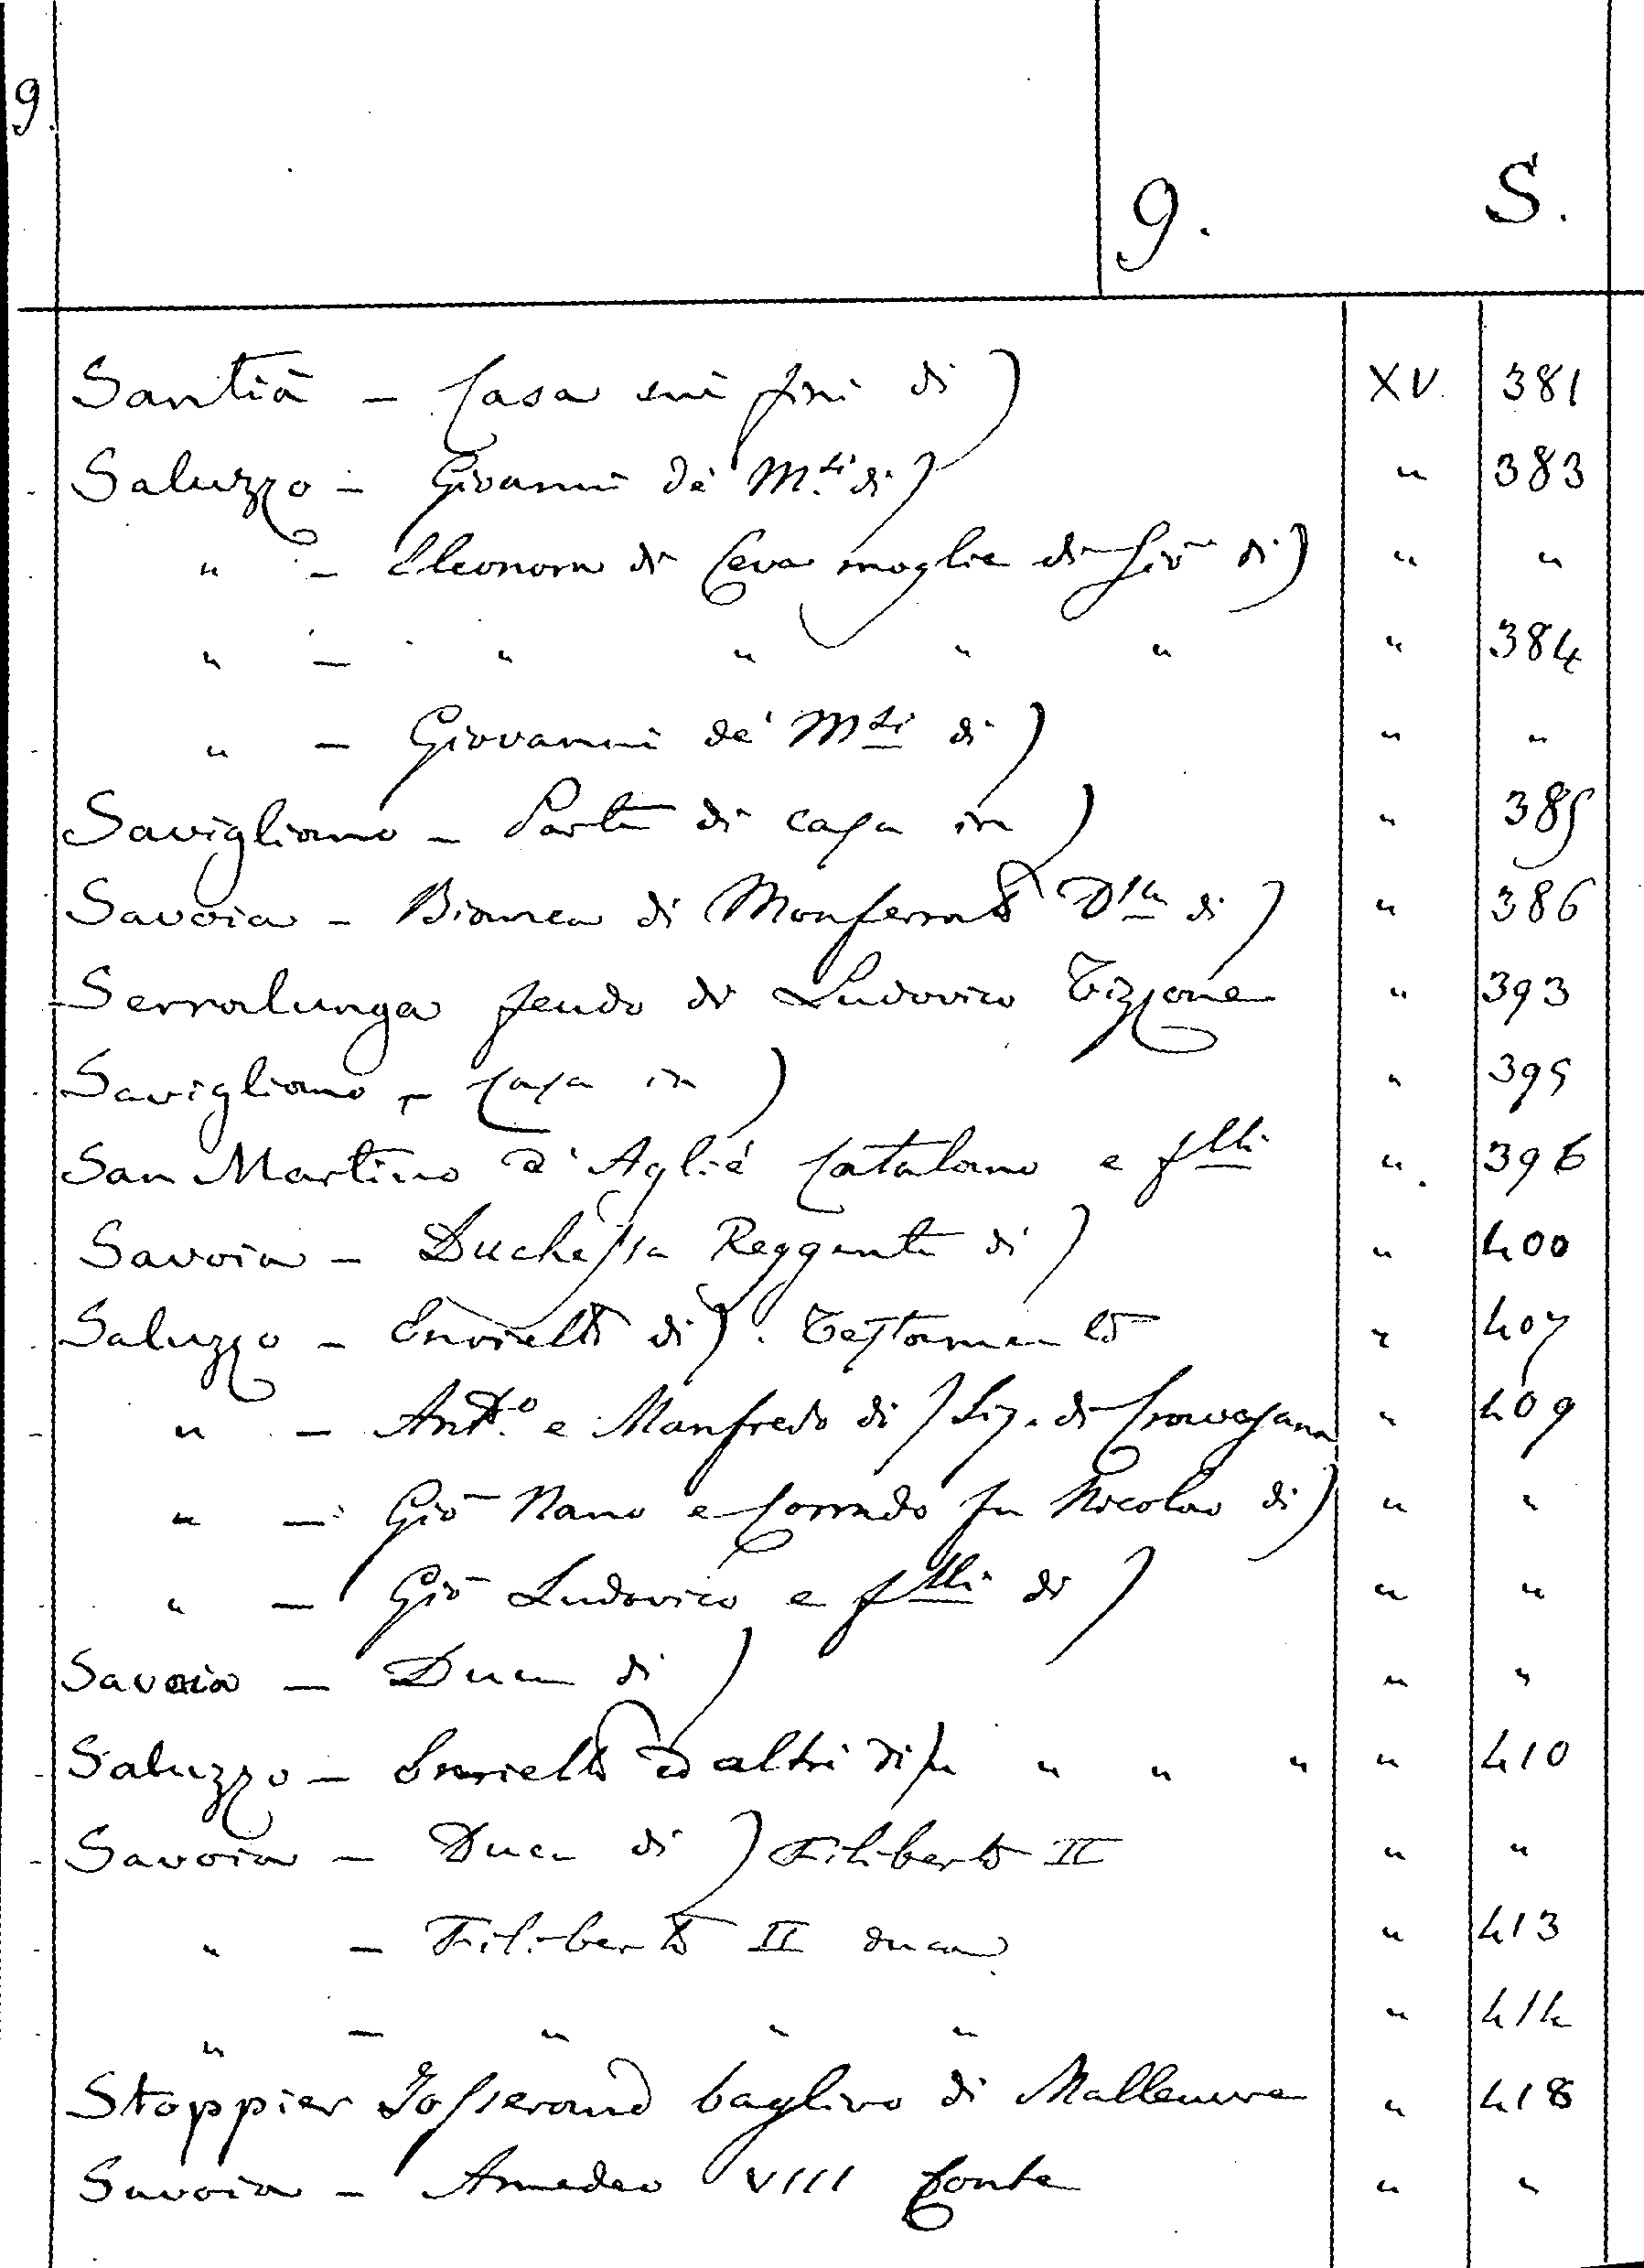 9.
9. S.
Santià - Casa sui fini di) XV. 381
Saluzzo - Giovanni de' M.si di) " 383
" - Eleonora di Ceva moglie di Gio di) " "
" - " " " " " 384
" - Giovanni de' Msi di) " "
Savigliano - Parte di casa in) " 385
Savoia - Bianca di Monferrato Dssa di) " 386
Serralunga feudo di Ludovico Tizzone " 393
Savigliano - Casa in) " 395
San Martino d'Aglié Catalano e flli " 396
Savoia - Duchessa Reggente di) " 400
Saluzzo - Envietto di). Testamento " 407
" - Ant.o e Manfredo di) Sig. di " 409
" - Gio Nano e Corrado fu Nicolao di) " "
" - Gio Ludovico e flli di) " "
Savoia - Duca di) " "
Saluzzo - ed altri di fu " " " " 410
Savoia - Duca di) Filiberto II " "
" - Filiberto II duca " 413
" - " " " " 414
Stoppier Josserand baglivo di " 418
Savoia - Amedeo VIII Conte " "